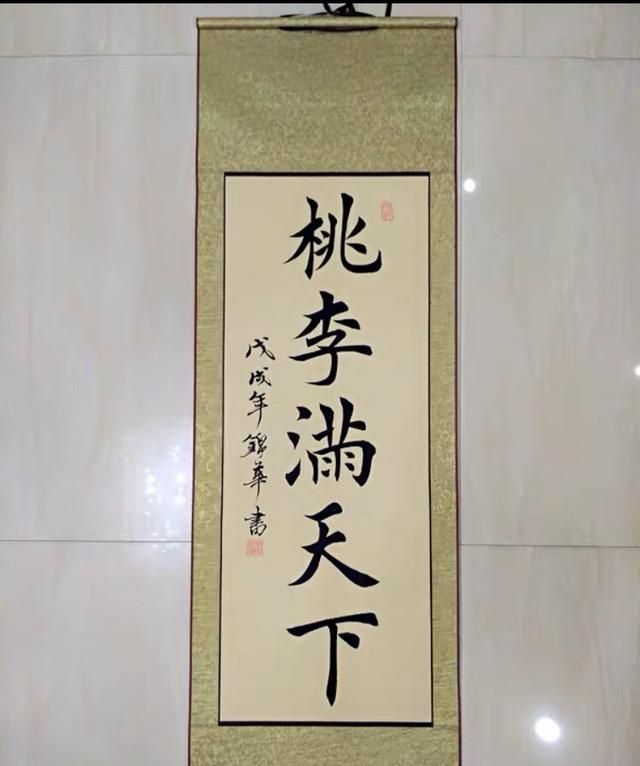 桃李滿天下
戊戌年錦華書